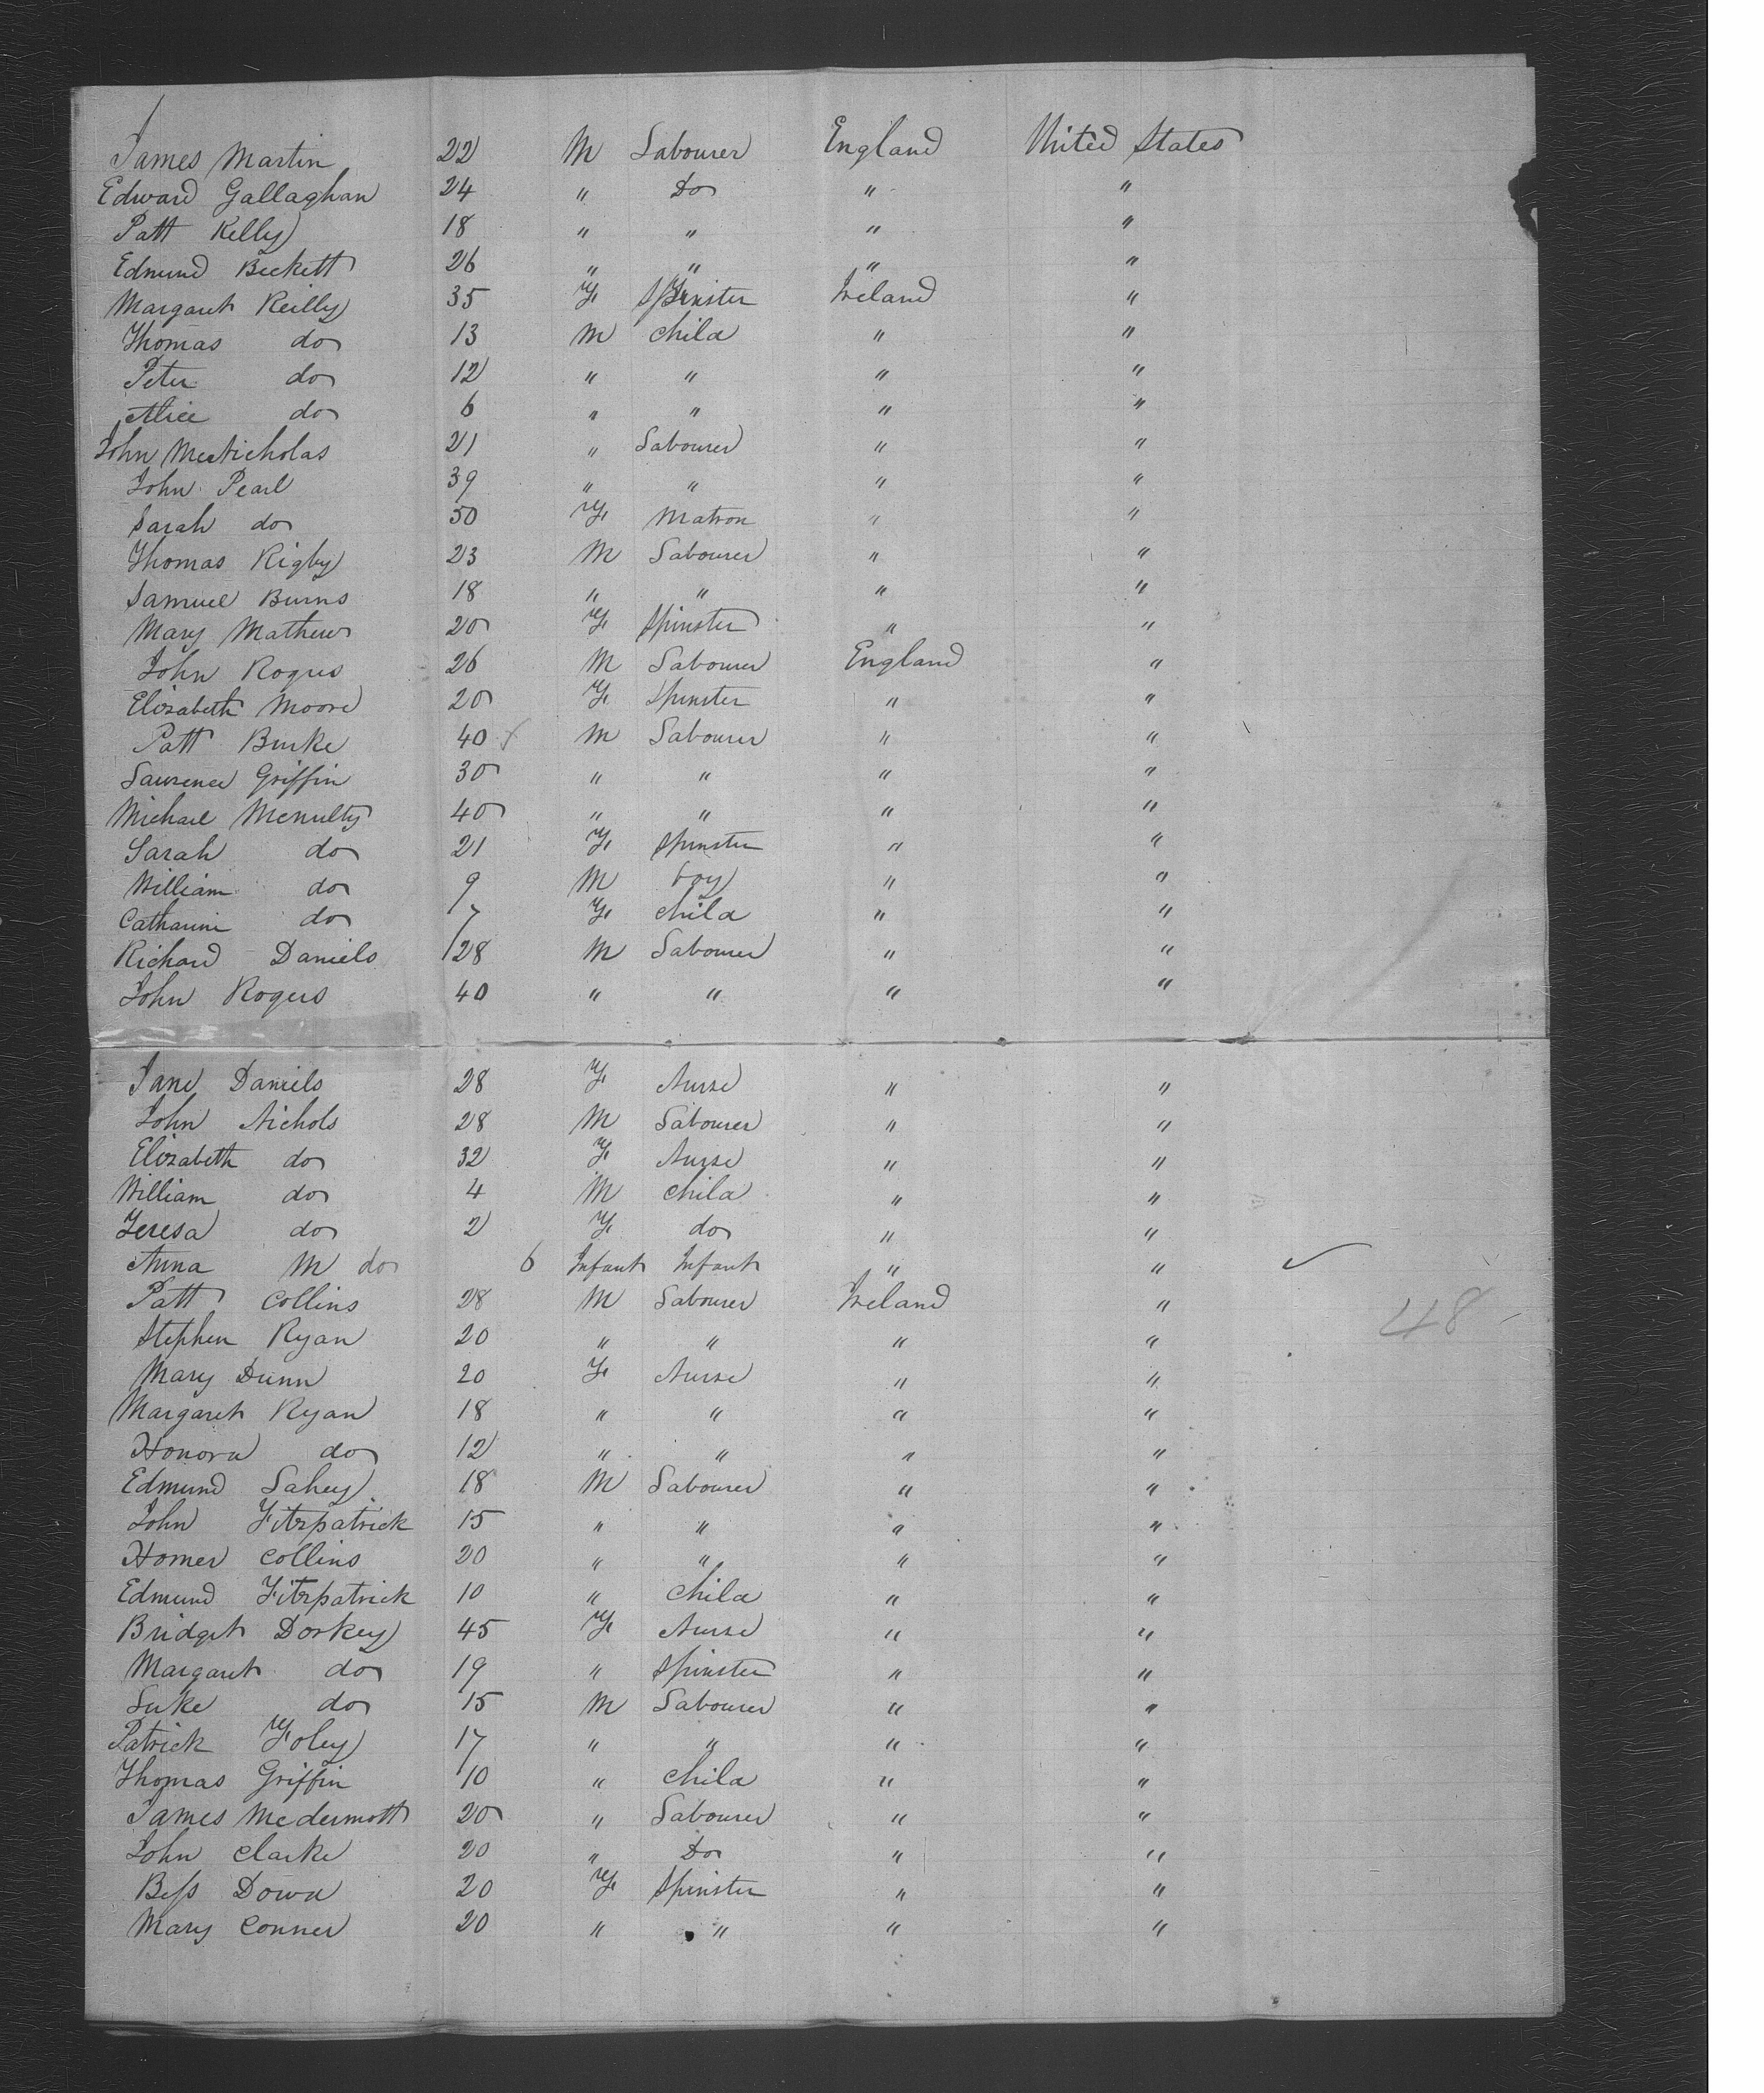 James Martin 22 M Labourer England United States
Edward Gallaghan 24 " Do " "
Patt Kelly 18 " " " "
Edmund Beckett 26 " " " "
Margaret Reilly 35 F Spinster Ireland "
Thomas do 13 M Child " "
Peter do 12 " " " "
Alice do 6 " " " "
John McNicholas 21 " Labourer " "
John Pearl 39 " " " "
Sarah do 50 F Matron " "
Thomas Rigby 23 M Labourer " "
Samuel Burns 18 " " " "
Mary Mathews 20 F Spinster " "
John Rogers 26 M Labourer England "
Elizabeth Moore 20 F Spinster " "
Patt Burke 40 M Labourer " "
Laurence Griffin 30 " " " "
Michael Mcnulty 40 " " " "
Sarah do 21 F Spinster " "
William do 9 M boy " "
Catharine do 7 F Child " "
Richard Daniels 28 M Labourer " "
John Rogers 40 " " " "
Jane Daniels 28 F Nurse " "
John Nichols 28 M Labourer " "
Elizabeth do 32 F Nurse " "
William do 4 M Child " "
Teresa do 2 F do " "
Anna M do 6 Infant Infant " " ✓
Patt Collins 28 M Labourer Ireland " 48
Stephen Ryan 20 " " " "
Mary Dunn 20 F Nurse " "
Margaret Ryan 18 " " " "
Honora do 12 " " " "
Edmund Lahey 18 M Labourer " "
John Fitzpatrick 15 " " " "
Homer Collins 20 " " " "
Edmund Fitzpatrick 10 " Child " "
Bridget Dorkey 45 F Nurse " "
Margaret do 19 " Spinster " "
Luke do 15 M Labourer " "
Patrick Foley 17 " " " "
Thomas Griffin 10 " Child " "
James Mcdermott 20 " Labourer " "
John Clarke 20 " Do " "
Bess Dowd 20 F Spinster " "
Mary Conner 20 " " " "